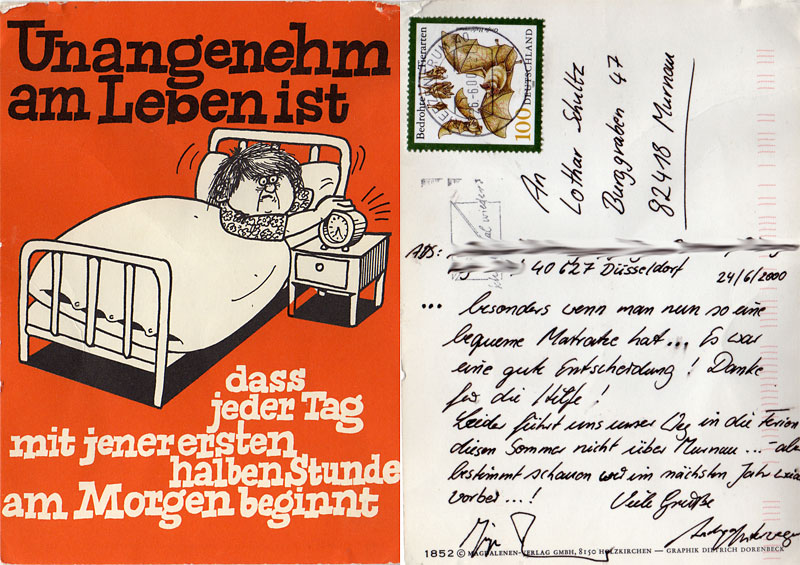 Unangenehm
am Leben ist
dass
jeder Tag
mit jener ersten
halben Stunde
am Morgen beginnt
Bedrohte Tierarten
100 DEUTSCHLAND
An
Lothar Shultz
Burggraben 47
82418 Murnau
ABS:
40627 Düsseldorf 24/6/2000
... besonders wenn man nun so eine
bequeme Matratze hat... Es war
eine gute Entscheidung! Danke
für die Hilfe!
Leider führt uns unser Weg in die Ferien
diesen Sommer nicht über Murnau...- aber
bestimmt schauen wir im nächsten Jahr
vorbei...!
Viele Grüße
1852 © MAGDALENEN-VERLAG GMBH, 8150 HOLZKIRCHEN — GRAPHIK DIETRICH DORENBECK